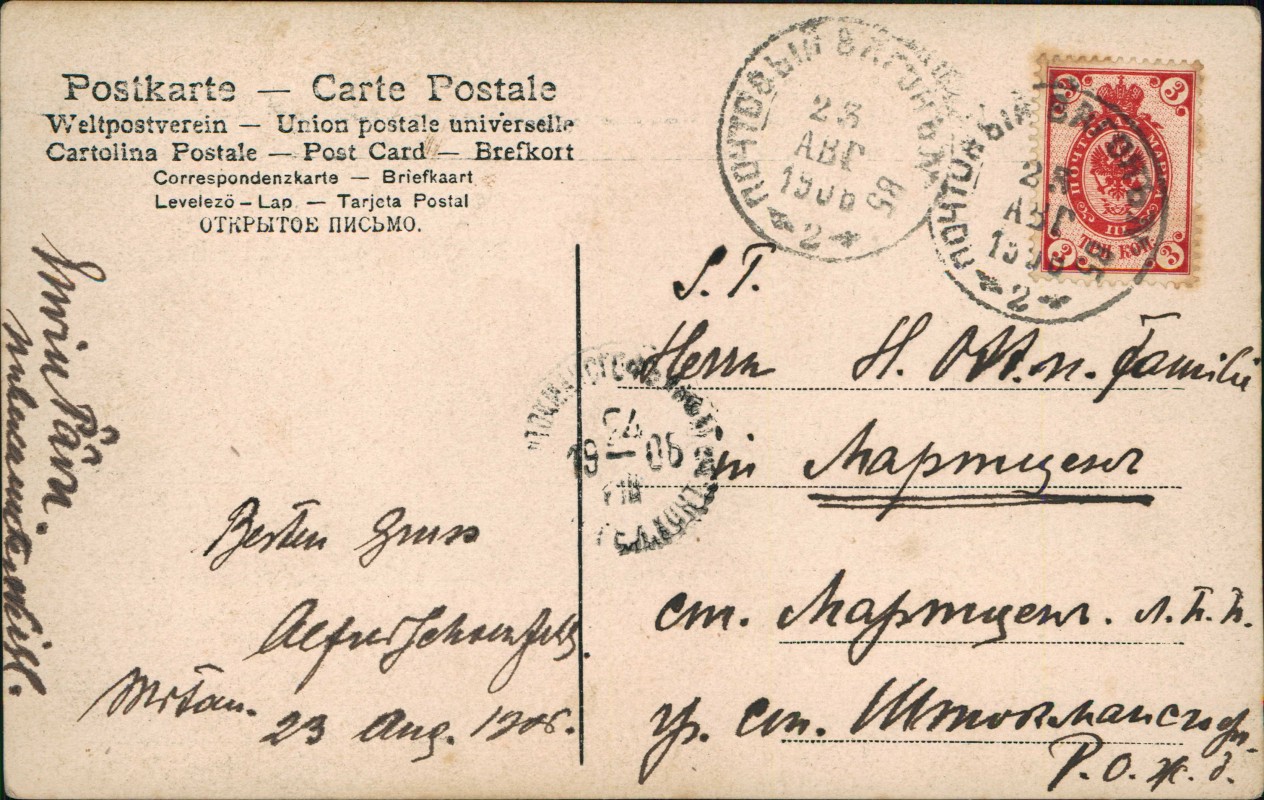 Postkarte — Carte Postale
Weltpostverein — Union postale universelle
Cartolina Postale — Post Card — Brefkort
Correspondenzkarte — Briefkaart
Levelező-Lap — Tarjeta Postal
ОТКРЫТОЕ ПИСЬМО.
ПОЧТОВЫЙ ВАГОНЪ 58
23
АВГ
1906
2
ПОЧТОВЫЙ ВАГОНЪ 58
23
АВГ
1906
2
3 3
ПОЧТОВАЯ МАРКА
ТРИ КОП.
3 3
S. T.
Herrn H. Ott. n. Familie
in Мартценъ
ст. Мартценъ. Л.П.П.
гр. ст. Штокмансгофъ.
Р. О. ж. д.
24
19 — 06
VIII
Besten Gruss
Alfred
Mitau. 23 Aug. 1906.
Erwin Pärn.